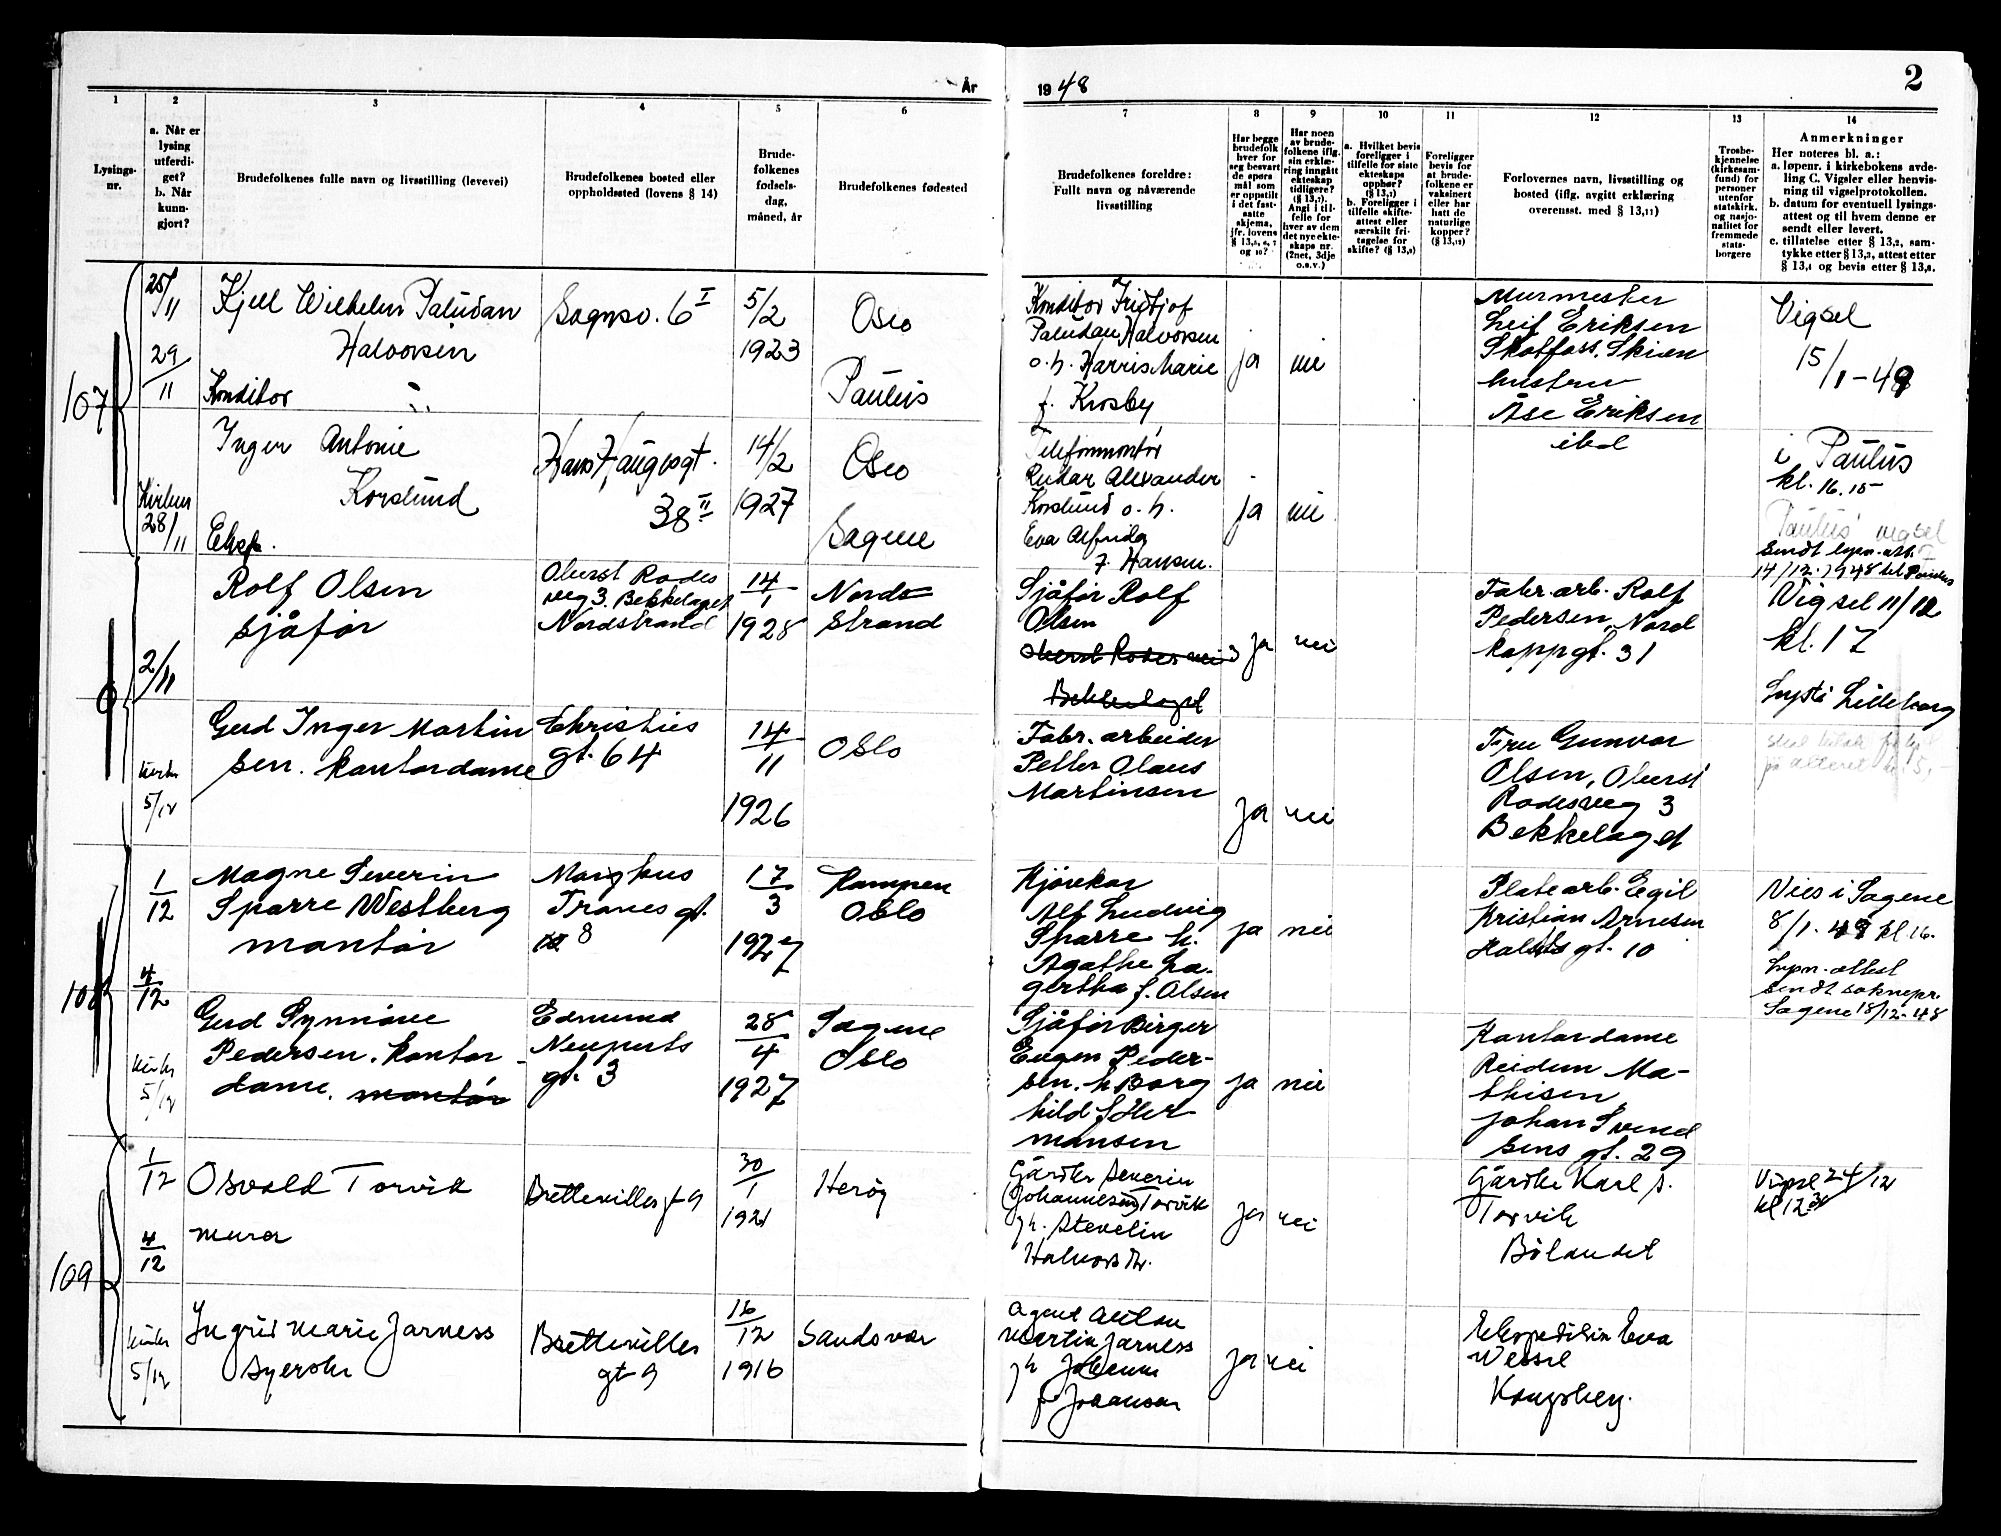 År
1948
2
1
2
3
4
5
6
7
8
9
10
11
12
13
14
Lysings-
nr.
a. Når er
lysing
utferdi-
get?
b. Når
kunn-
gjort?
Brudefolkenes fulle navn og livsstilling (levevei)
Brudefolkenes bosted eller
oppholdssted (lovens § 14)
Brude-
folkenes
fødsels-
dag,
måned, år
Brudefolkenes fødested
Brudefolkenes foreldre:
Fullt navn og nåværende
livsstilling
Har begge
brudefolk
hver for
seg besvart
de spørs
mål som
er oppstilt
i det fast-
satte
skjema,
jfr. lovens
§ 13,5, 6, 7
og 10?
Har noen
av brude-
folkene iflg.
sin erklæ-
ring inngått
ekteskap
tidligere?
(§ 13,7).
Angi i til-
felle for
hver av dem
det nye ekte-
skaps nr.
(2net, 3dje
o.s.v.)
a. Hvilket bevis
foreligger i
tilfelle for siste
ekteskaps
opphør?
(§ 13,7)
b. Foreligger i
tilfelle skifte-
attest eller
særskilt fri-
tagelse for
skifte? (§ 13,8)
Foreligger
bevis for
at brude-
folkene er
vaksinert
eller har
hatt de
naturlige
kopper?
(§ 13,12)
Forlovernes navn, livsstilling og
bosted (iflg. avgitt erklæring
overensst. med § 13,11)
Trosbe-
kjennelse
(kirkesam-
fund) for
personer
utenfor
statskirk.
og nasjo-
nalitet for
fremmede
stats-
borgere
Anmerkninger
Her noteres bl. a.:
a. løpenr. i kirkebokens avde-
ling C. Vigsler eller henvis-
ning til vigselprotokollen.
b. datum for eventuell lysings-
attest og til hvem denne er
sendt eller levert.
c. tillatelse etter § 13,2, sam-
tykke etter § 13,3, attest etter
§ 13,4 og bevis etter § 13,8.
107
25/11
29/11
Kjell Wilhelm Paludan
Halvorsen
Konditor
Sognsv. 6 I
5/2
1923
Oslo
Paulus
Konditor Fridtjof
Paludan Halvorsen
o. h. Harris Marie
f. Krosby
ja
nei
Murmester
Leif Eriksen
Skotfoss. Skien
hustru
Åse Eriksen
ibid
Vigsel
15/1-49
Kirken
28/11
Inger Antonie
Korslund
Eksp.
Hans Haugesgt.
38 II
14/2
1927
Oslo
Sagene
Telefonmontør
Reidar Alexander
Korslund o. h.
Eva Alfrida
f. Hansen.
ja
nei
i Paulus
kl. 16.15
Paulus vigsel
sendt lysn.att.
14/12.1948 til Paulus
2/11
Rolf Olsen
sjåfør
Oberst Rodes
veg 3. Bekkelaget
Nordstrand
14/1
1928
Nord
strand
Sjåfør Rolf
Olsen
Oberst Rodes vei 3
Bekkelaget
ja
nei
Fabr.arb. Rolf
Pedersen, Nord
kappgt. 31
Vigsel 11/12
kl. 17
Lyst i Lilleborg
Kirken
5/12
Gerd Inger Martin
sen. kontordame
Christies
gt. 64
14/11
1926
Oslo
Fabr. arbeider
Petter Olaus
Martinsen
ja
nei
Fru Gunvor
Olsen, Oberst
Rodesveg 3
Bekkelaget
108
1/12
4/12
Magne Severin
Sparre Westberg
montør
Tranesgt.
8
17/3
1927
Kampen
Oslo
Kjørekar
Alf Ludvig
Sparre h.
Agathe La-
gertha f. Olsen
ja
nei
Platearb. Egil
Kristian Arnesen
gt. 10
Vies i Sagene
8/1.49 kl. 16.
Lysn. attest
sendt soknepr.
Sagene 18/12-48
Kirken
5/12
Gerd Synnøve
Pedersen. kontor-
dame. montør
Edmund
Neuperts
gt. 3
28/4
1927
Sagene
Oslo
Sjåfør Birger
Eugen Peder-
sen. h Borg
hild f Her
mansen
ja
nei
Kontordame
Reidun Ma-
thisen
Johan Svend
sens gt. 29
109
1/12
4/12
Osvald Torvik
murer
Brettevillesgt 9
30/1
1921
Herøy
Gårdbr Severin
Johannesen Torvik
h. Stevelin
Halvorsdr.
ja
nei
Gårdbr Karl S.
Torvik
Bølandet
Vigsel 24/12
kl 12 30
Kirken
5/12
Ingrid Marie Jarness
syerske
Brettevilles
gt 9
16/12
1916
Sandsvær
Agent Anton
Martin Jarness
h Johanne
f. Johansen
ja
nei
Ekspeditrise Eva
Wessel
Kongsberg.